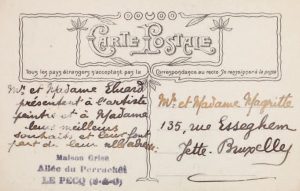 CARTE POSTALE
Tous les pays étrangers n'acceptent pas la Correspondance au recto. Se renseigner à la poste
Mr. et Madame Eluard
présentent à l'artiste
peintre et à Madame
leurs meilleurs
souhaits et leur font
part de leur
Mr. et Madame Magritte
135, rue Esseghem
Jette. Bruxelles
Maison Grise
Allée du Perruchet
LE PECQ (S-&-O)